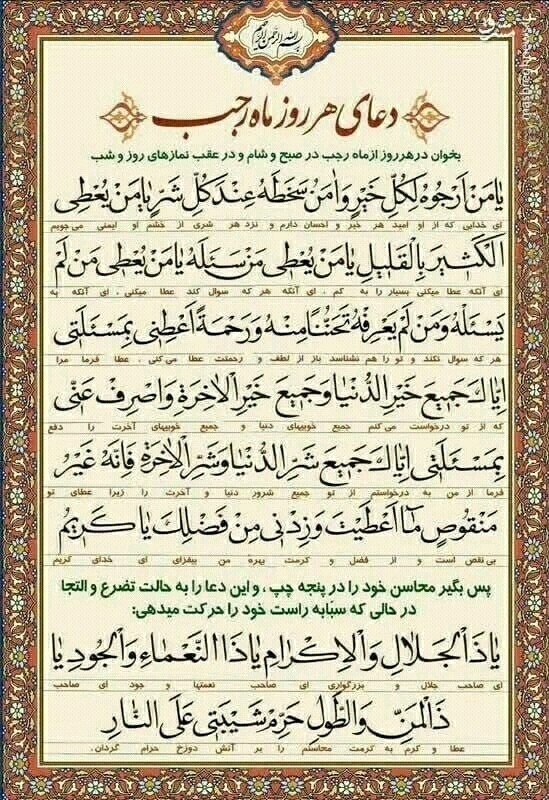 بسم الله الرحمن الرحیم
دعای هر روز ماه رجب
بخوان در هر روز از ماه رجب در صبح و شام و در عقب نمازهای روز و شب
یا مَنْ اَرْجُوهُ لِکُلِّ خَیْرٍ وَ امَنُ سَخَطَهُ عِنْدَ کُلِّ شَرٍّ یا مَنْ یُعْطِی
ای خدایی که از او امید هر خیر و احسان دارم و نزد هر شری از خشم او ایمنی می جویم
الْکَثیرَ بِالْقَلیلِ یا مَنْ یُعْطی مَنْ سَئَلَهُ یا مَنْ یُعْطی مَنْ لَمْ
ای آنکه عطا میکنی بسیار را به کم ، ای آنکه هر که سوال کند عطا میکنی ، ای آنکه به
یَسْئَلْهُ وَ مَنْ لَمْ یَعْرِفْهُ تَحَنُّناً مِنْهُ وَ رَحْمَةً اَعْطِنی بِمَسْئَلَتی
هر که سوال نکند و تو را هم نشناسد باز از لطف و رحمتت عطا می کنی ، عطا فرما مرا
اِیّاکَ جَمیعَ خَیْرِ الدُّنْیا وَ جَمیعَ خَیْرِ الْاخِرَةِ وَ اصْرِفْ عَنّی
که از تو درخواست می کنم جمیع خوبیهای دنیا و جمیع خوبیهای آخرت را و دفع
بِمَسْئَلَتی اِیّاکَ جَمیعَ شَرِّ الدُّنْیا وَ شَرِّ الْاخِرَةِ فَاِنَّهُ غَیْرُ
فرما از من به درخواستم از تو جمیع شرور دنیا و آخرت را زیرا عطای تو
مَنْقُوصٍ ما اَعْطَیْتَ وَ زِدْنی مِنْ فَضْلِکَ یا کَریمُ
بی نقص است و از فضل و کرمت بهره من بیفزای ای خدای کریم
پس بگیر محاسن خود را در پنجه چپ ، و این دعا را به حالت تضرع و التجا
در حالی که سبّابه راست خود را حرکت میدهی:
یا ذَا الْجَلالِ وَ الْاِکْرامِ یا ذَا النَّعْماءِ وَ الْجُودِ یا
ای صاحب جلال و بزرگواری ای صاحب نعمتها و جود ای صاحب
ذَا الْمَنِّ وَ الطَّوْلِ حَرِّمْ شَیْبَتی عَلَی النّارِ
عطا و کرم به کرمت محاسنم را بر آتش دوزخ حرام گردان.